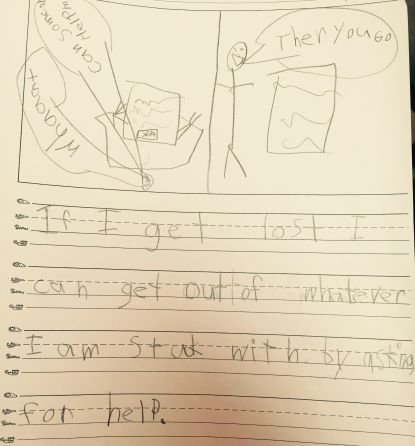 Can Some
Help m
Whaaat
Ther you Go
If I get lost I
can get out of whatever
I am Stuk with. by asking
for help.